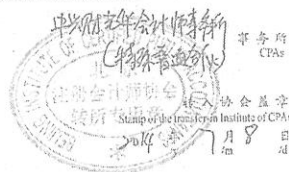 中兴财光华会计师事务所
(特殊普通合伙)
事务所
CPAs
北京注册会计师协会
转所专用章
转入协会盖章
Stamp of the transfer-in Institute of CPAs
2014年7月8日